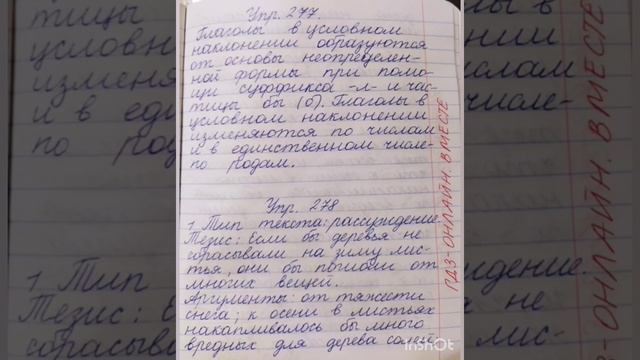 Упр. 277.
Глаголы в условном
наклонении образуются
от основы неопределен-
ной формы при помо-
щи суффикса -л- и час-
тицы бы (б). Глаголы в
условном наклонении
изменяются по числам
и в единственном числе-
по родам.
Упр. 278
1 Тип текста: рассуждение
Тезис: Если бы деревья не
сбрасывали на зиму лис-
тья, они бы погибли от
многих вещей.
Аргументы: от тяжести
снега; к осени в листьях
накапливалось бы много
вредных для дерева солей
ГДЗ-ОНЛАЙН. ВМЕСТЕ
InShot